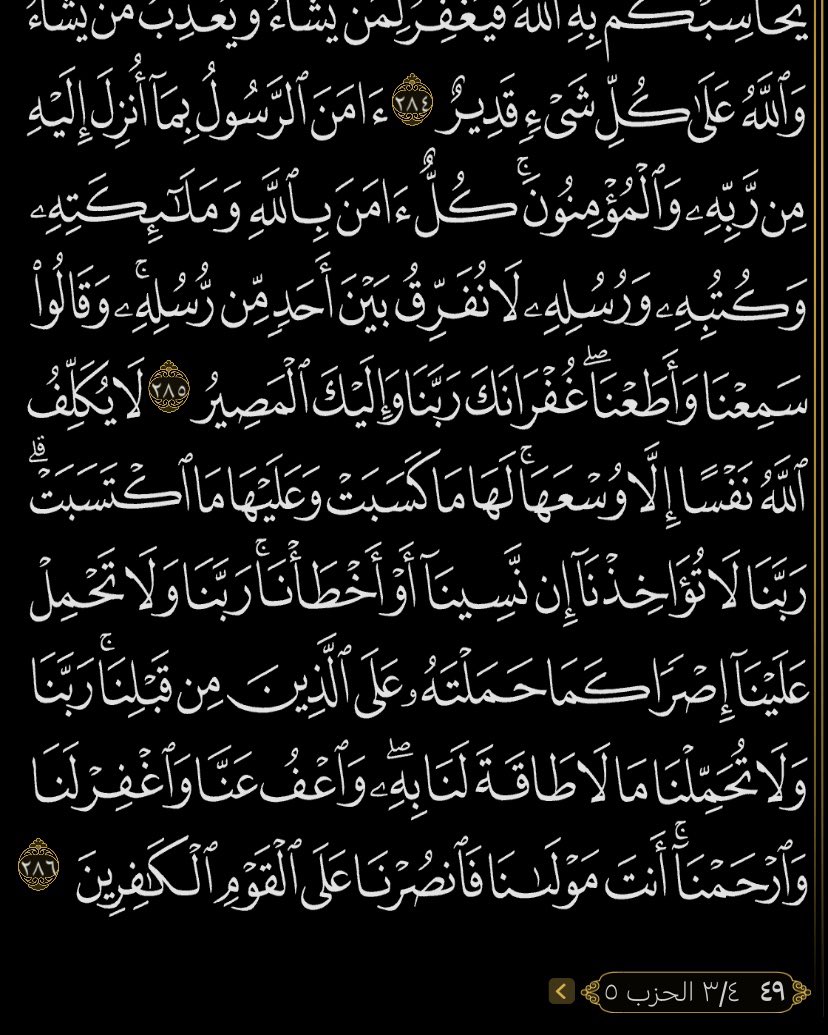 يُحَاسِبْكُم بِهِ ٱللَّهُ فَيَغْفِرُ لِمَن يَشَآءُ وَيُعَذِّبُ مَن يَشَآءُ
وَٱللَّهُ عَلَىٰ كُلِّ شَىْءٍ قَدِيرٌ ٢٨٤ ءَامَنَ ٱلرَّسُولُ بِمَآ أُنزِلَ إِلَيْهِ
مِن رَّبِّهِۦ وَٱلْمُؤْمِنُونَ ۚ كُلٌّ ءَامَنَ بِٱللَّهِ وَمَلَـٰٓئِكَتِهِۦ
وَكُتُبِهِۦ وَرُسُلِهِۦ لَا نُفَرِّقُ بَيْنَ أَحَدٍ مِّن رُّسُلِهِۦ ۚ وَقَالُوا۟
سَمِعْنَا وَأَطَعْنَا ۖ غُفْرَانَكَ رَبَّنَا وَإِلَيْكَ ٱلْمَصِيرُ ٢٨٥ لَا يُكَلِّفُ
ٱللَّهُ نَفْسًا إِلَّا وُسْعَهَا ۚ لَهَا مَا كَسَبَتْ وَعَلَيْهَا مَا ٱكْتَسَبَتْ ۗ
رَبَّنَا لَا تُؤَاخِذْنَآ إِن نَّسِينَآ أَوْ أَخْطَأْنَا ۚ رَبَّنَا وَلَا تَحْمِلْ
عَلَيْنَآ إِصْرًا كَمَا حَمَلْتَهُۥ عَلَى ٱلَّذِينَ مِن قَبْلِنَا ۚ رَبَّنَا
وَلَا تُحَمِّلْنَا مَا لَا طَاقَةَ لَنَا بِهِۦ ۖ وَٱعْفُ عَنَّا وَٱغْفِرْ لَنَا
وَٱرْحَمْنَآ ۚ أَنتَ مَوْلَىٰنَا فَٱنصُرْنَا عَلَى ٱلْقَوْمِ ٱلْكَـٰفِرِينَ ٢٨٦
٤٩ ٣/٤ الحزب ٥